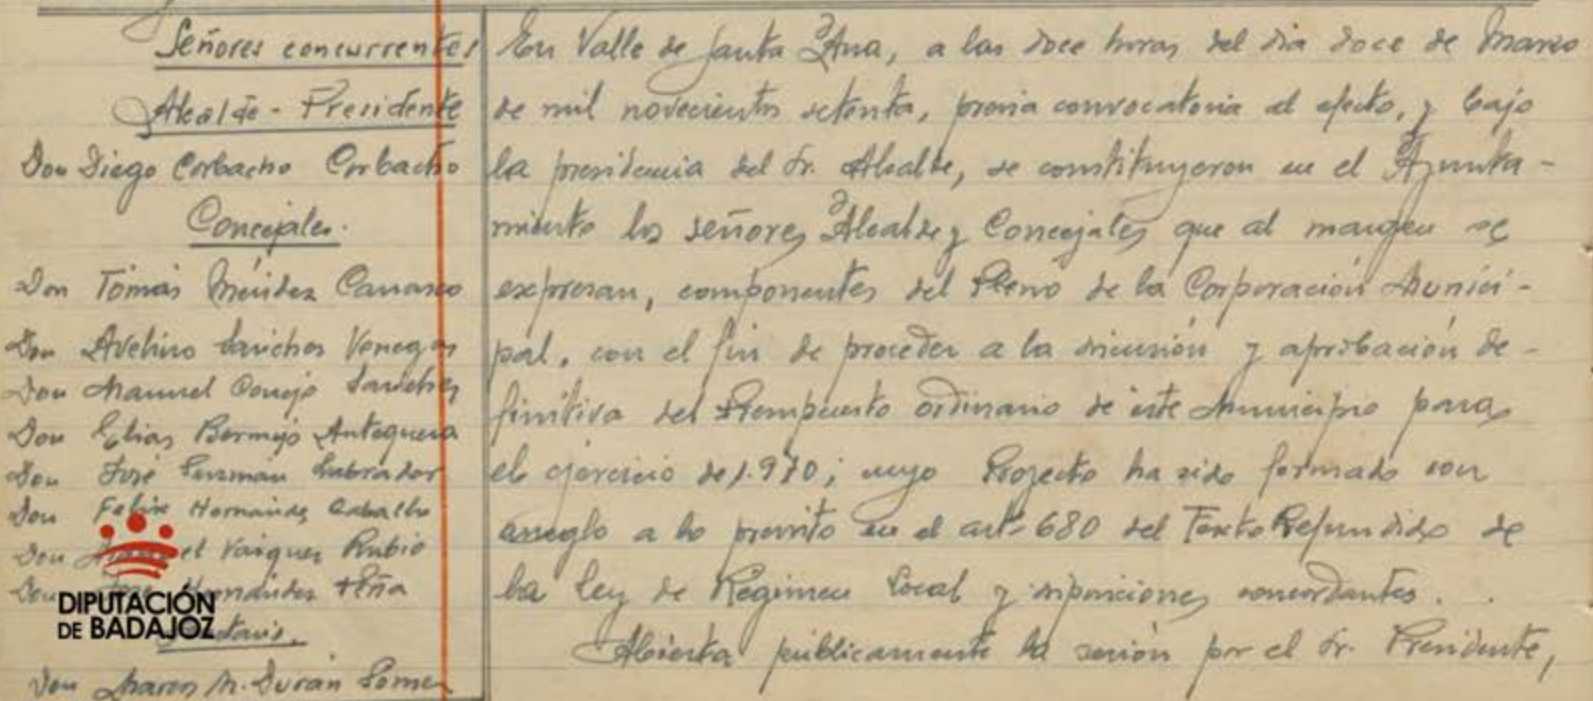 Señores concurrentes
Alcalde - Presidente
Don Diego Corbacho Corbacho
Concejales.
Don Tomás Méndez Carrasco
Don Avelino Sánchez Venegas
Don Manuel Conejo Sánchez
Don Elias Bermejo Antequera
Don José Guzman Labrador
Don Felipe Hernández Caballo
Don Vázquez Rubio
Don Hernández Peña
Don Marcos M. Durán Gómez
En Valle de Santa Ana, a las doce horas del dia doce de Marzo
de mil novecientos setenta, previa convocatoria al efecto, y bajo
la presidencia del Sr. Alcalde, se constituyeron en el Ayunta-
miento los señores Alcalde y Concejales que al margen se
expresan, componentes del Pleno de la Corporación Munici-
pal, con el fin de proceder a la discusión y aprobación de-
finitiva del Presupuesto ordinario de este Municipio para
el ejercicio de 1.970; cuyo Proyecto ha sido formado con
arreglo a lo previsto en el artº 680 del Texto Refundido de
la Ley de Regimen Local y disposiciones concordantes. .
Abierta públicamente la sesión por el Sr. Presidente,
DIPUTACIÓN
DE BADAJOZ